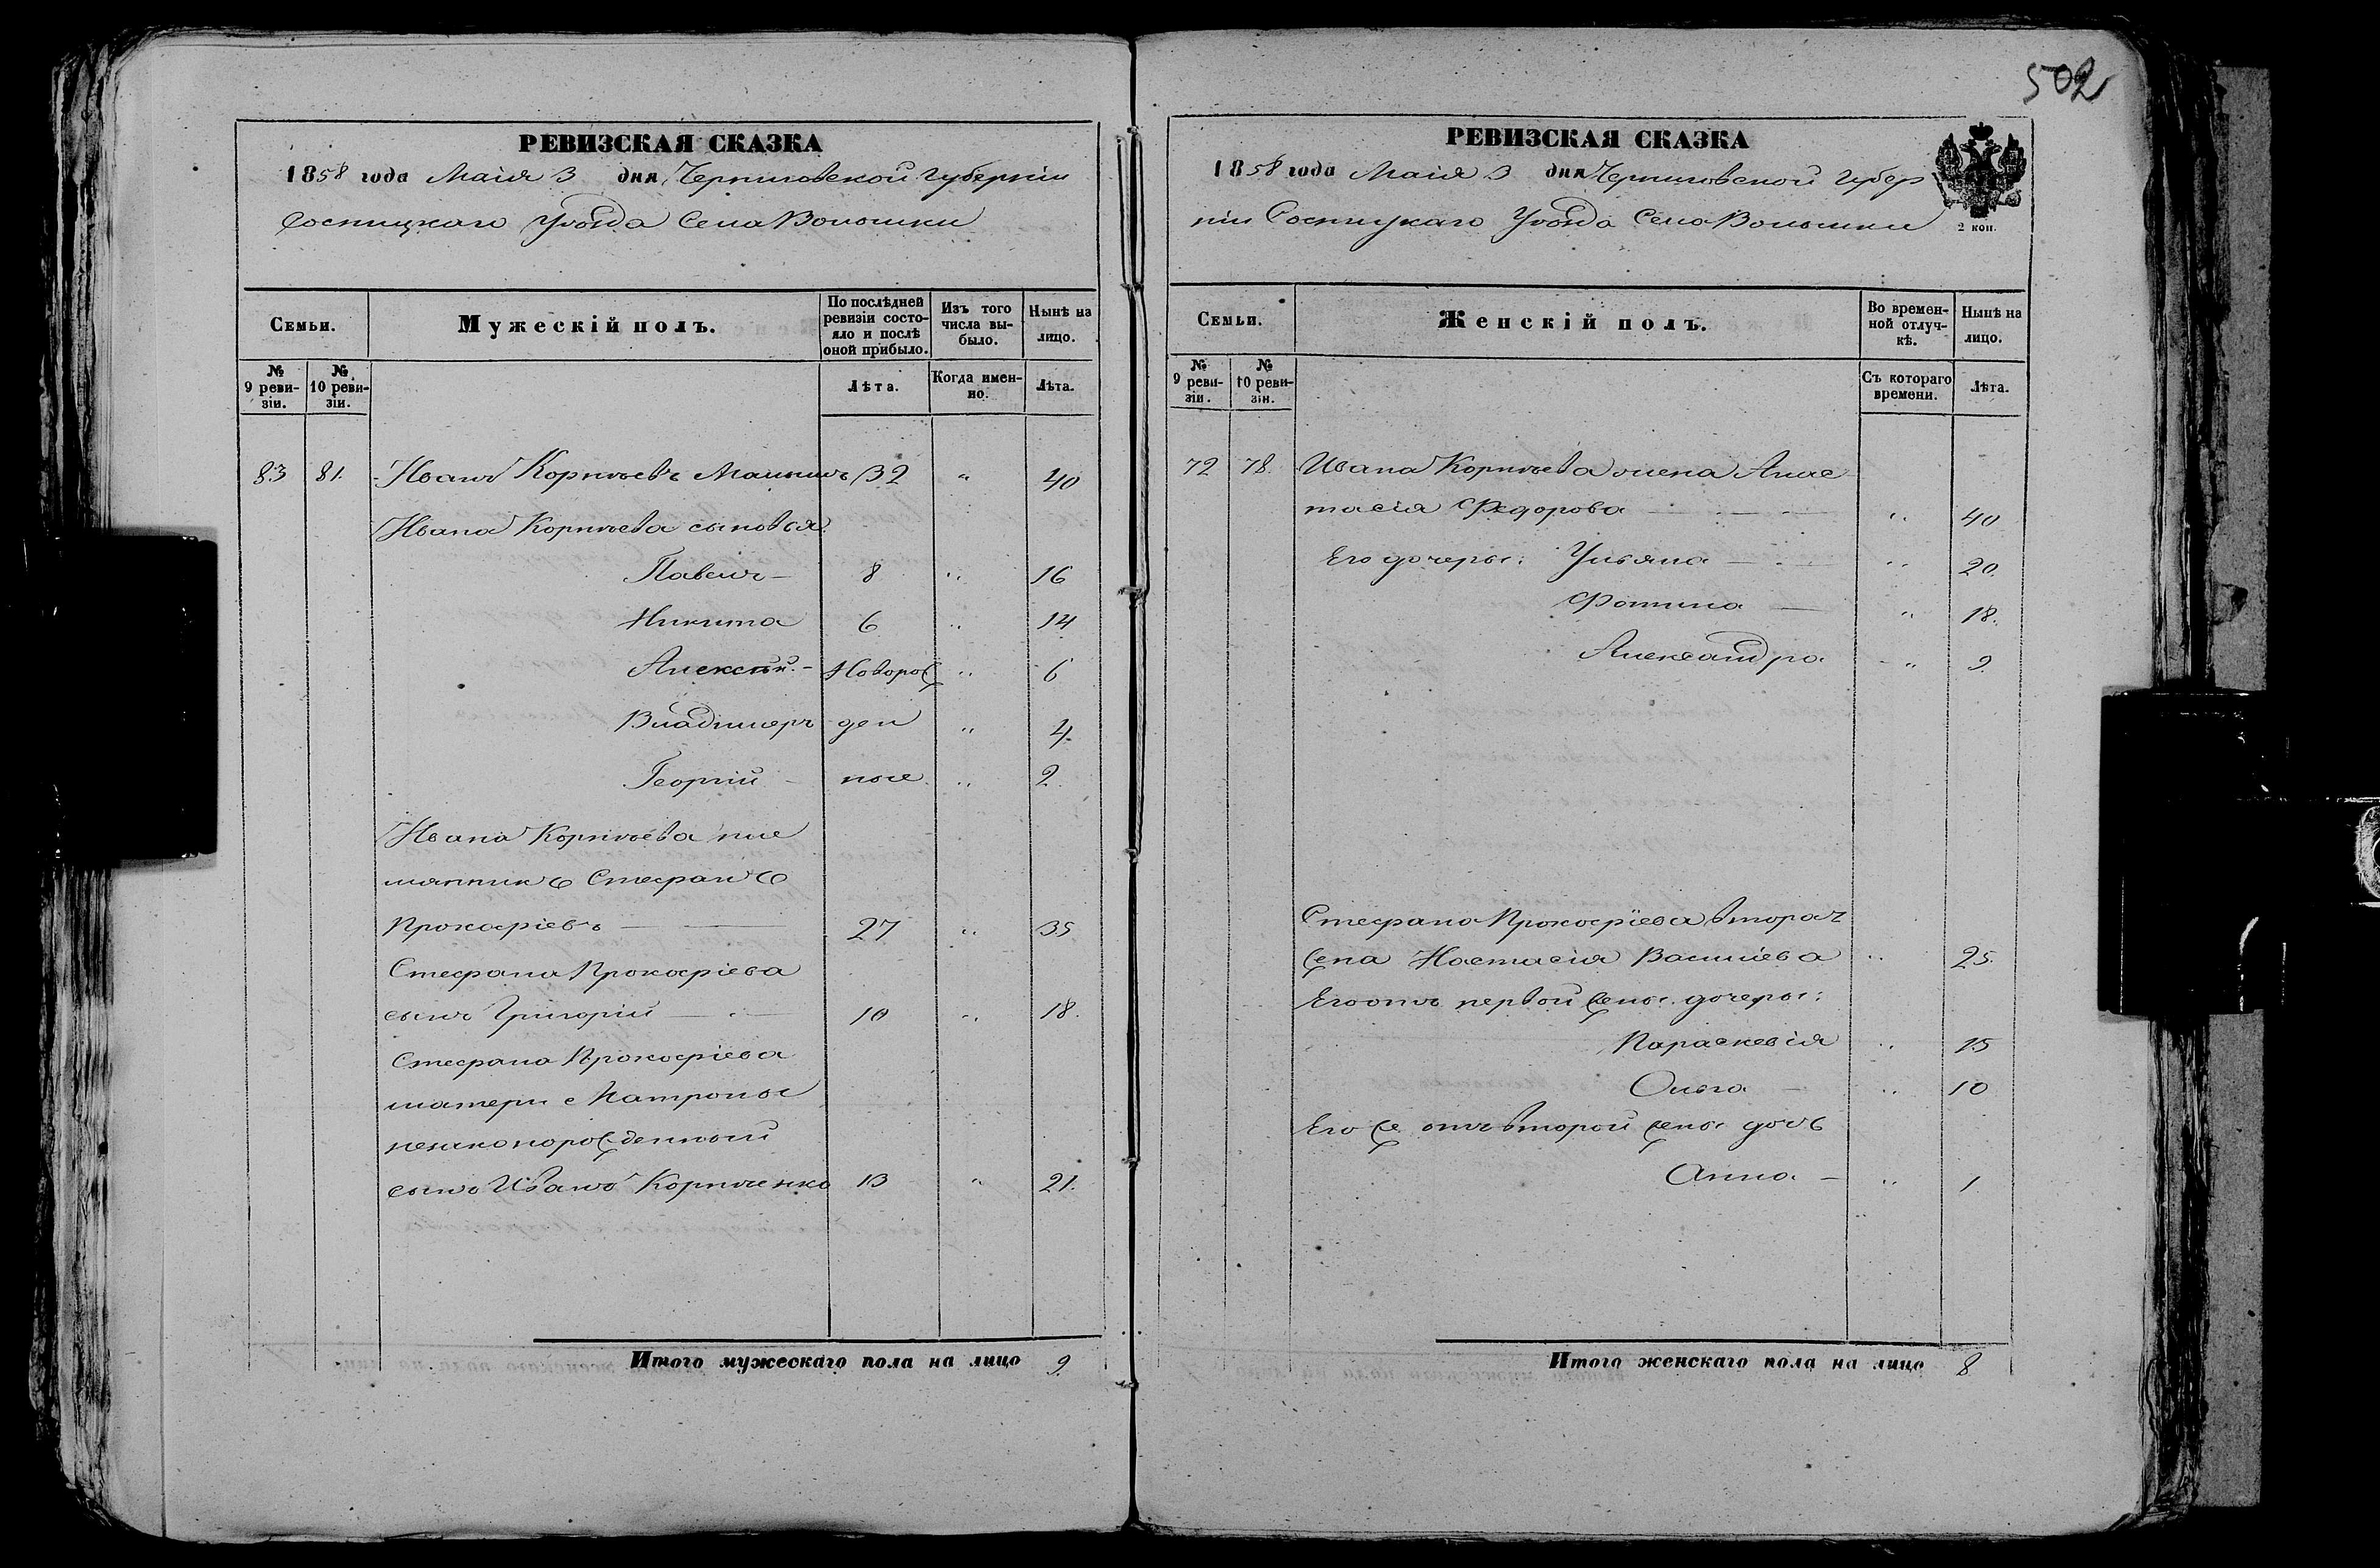 502
РЕВИЗСКАЯ СКАЗКА
1858 года Маія 3 дня Черниговской Губерніи
Сосницкаго Уѣзда Села Волынки
Семьи.
Мужескій полъ.
По послѣдней ревизіи состояло и послѣ оной прибыло.
Изъ того числа выбыло.
Нынѣ на лицо.
№ 9 ревизіи.
№ 10 ревизіи.
Лѣта.
Когда именно.
Лѣта.
83 81. Иванъ Корнѣевъ 32 " 40
Ивана Корнѣева сыновья:
Павелъ — 8 " 16
Никита 6 " 14
Алексѣй. — Новорож " 6
Владимеръ ден " 4
Георгій — ные " 2.
Ивана Корнѣева пле
мянникъ Стефанъ
Прокофіевъ — 27 " 35
Стефана Прокофіева
сынъ Григорій — 10 " 18.
Стефана Прокофіева
матери Матроны
незаконорожденный
сынъ Иванъ Корнѣенко 13 " 21.
Итого мужескаго пола на лицо 9.
РЕВИЗСКАЯ СКАЗКА
1858 года Маія 3 дня Черниговской Губер
ніи Сосницкаго Уѣзда Села Волынки
2 коп.
Семьи.
Женскій полъ.
Во временной отлучкѣ.
Нынѣ на лицо.
№ 9 ревизіи.
№ 10 ревизіи.
Съ котораго времени.
Лѣта.
72 78. Ивана Корнѣева жена Анас
тасія Федорова — " 40
Его дочеры: Ульяна — " 20.
Фотина — " 18.
Александра " 9.
Стефана Прокофіева втораѧ
жена Настасія Василіева " 25.
Его отъ первой жены дочеры:
Параскевія " 15
Ольга — " 10
Его же отъ второй жены дочь
Анна — " 1
Итого женскаго пола на лицо 8